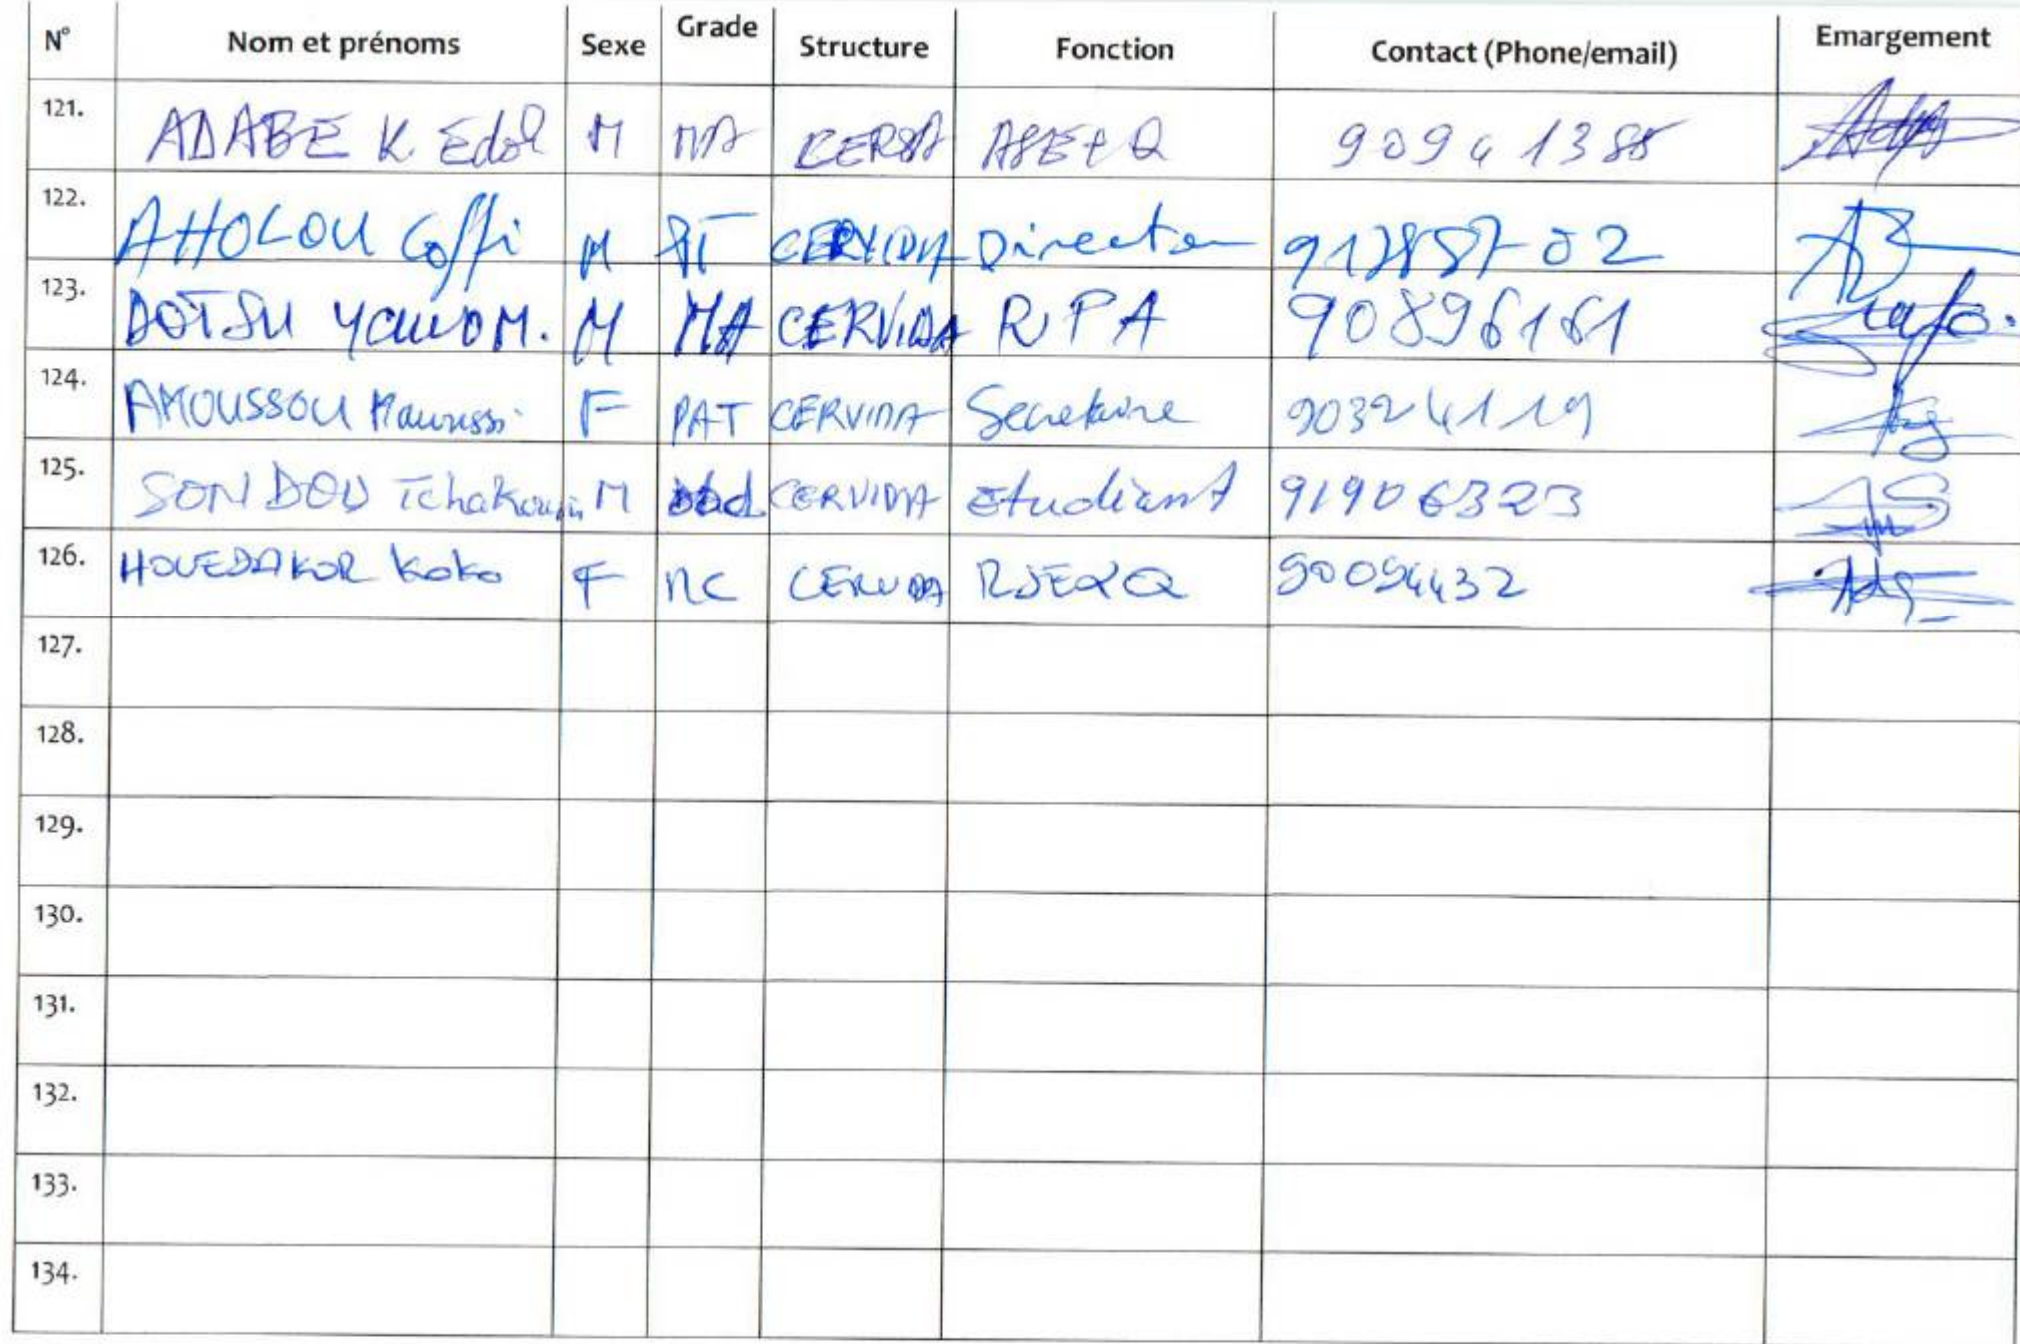 N° Nom et prénoms Sexe Grade Structure Fonction Contact (Phone/email) Emargement
121. ADABE K. Edol M MA CERSA ASE+Q 90941388
122. AHOLOU Coffi M CERVIDA Director 02
123. DOTSU M. M MA CERVIDA RPA 90896161
124. AMOUSSOU F PAT CERVIDA Secretaire 90324119
125. SONDOU M CERVIDA Etudiant 91906323
126. HOUEDAKOR Koko F MC CERVIDA 90094432
127.
128.
129.
130.
131.
132.
133.
134.